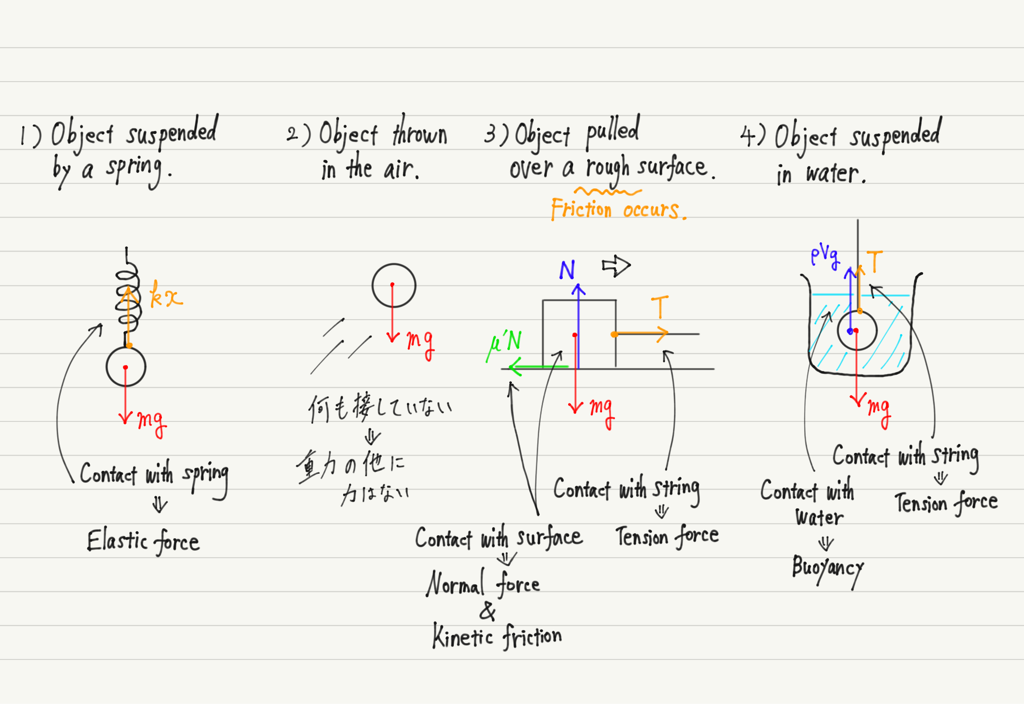 1) Object suspended
by a spring.
kx
mg
Contact with spring
⇓
Elastic force
2) Object thrown
in the air.
mg
何も接していない
⇓
重力の他に
力はない
3) Object pulled
over a rough surface.
Friction occurs.
N
⇨
T
μ'N
mg
Contact with string
⇓
Tension force
Contact with surface
⇓
Normal force
&
Kinetic friction
4) Object suspended
in water.
ρVg
T
mg
Contact with string
⇓
Tension force
Contact with
water
⇓
Buoyancy